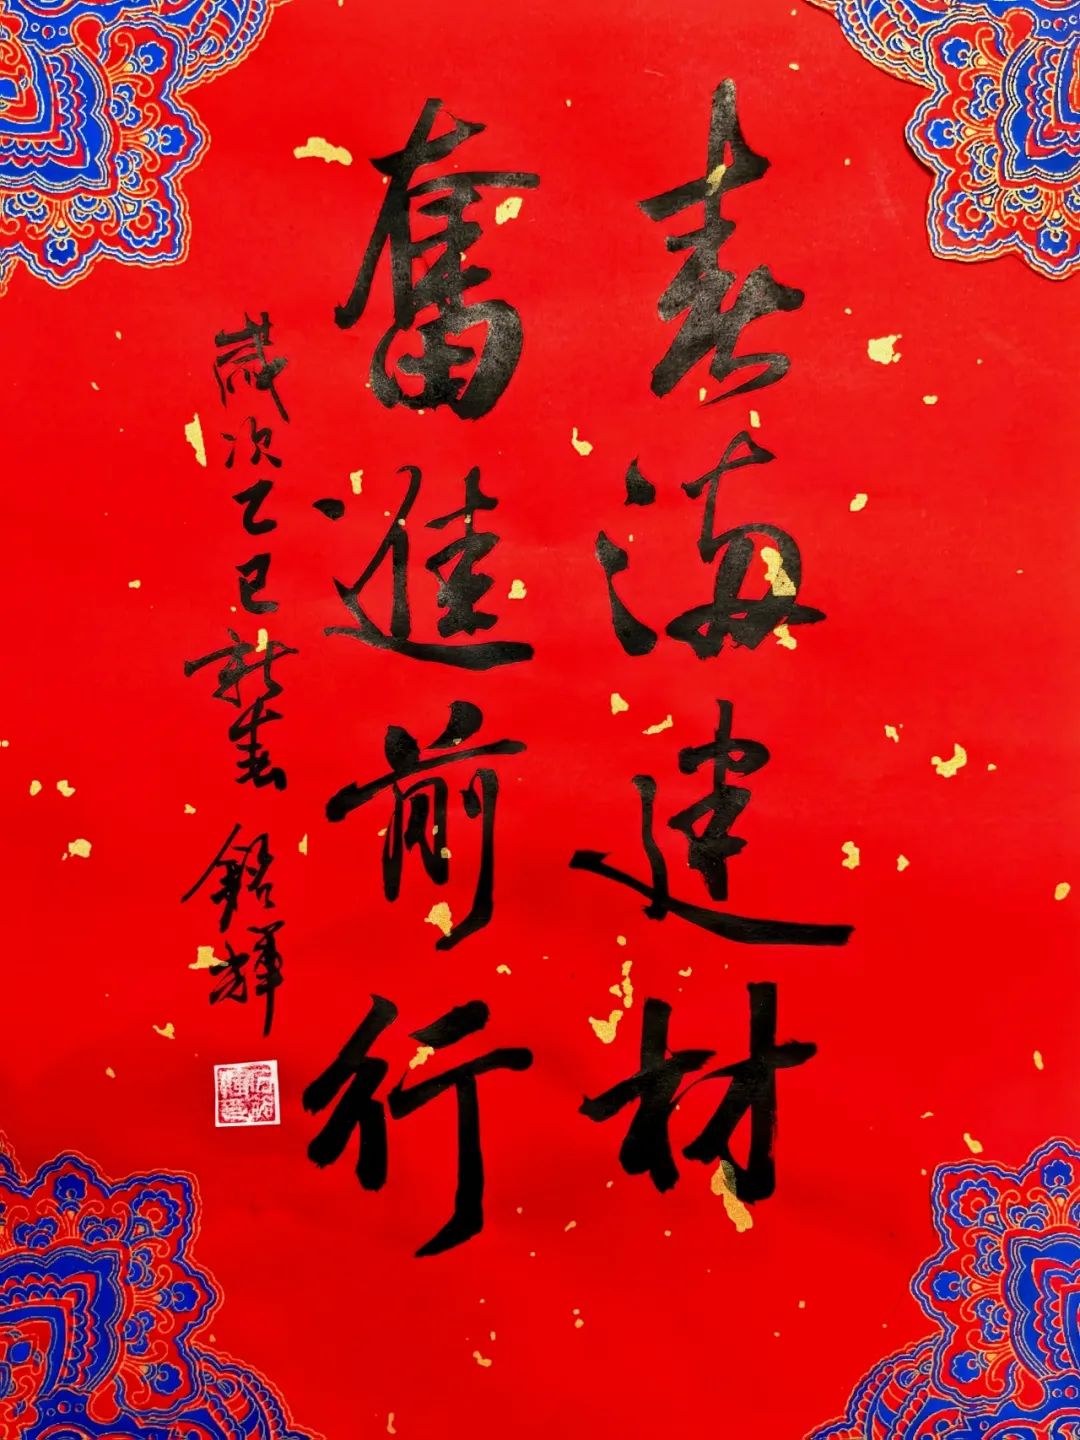 春海建材
奮進前行
歲次乙巳新春 銘輝